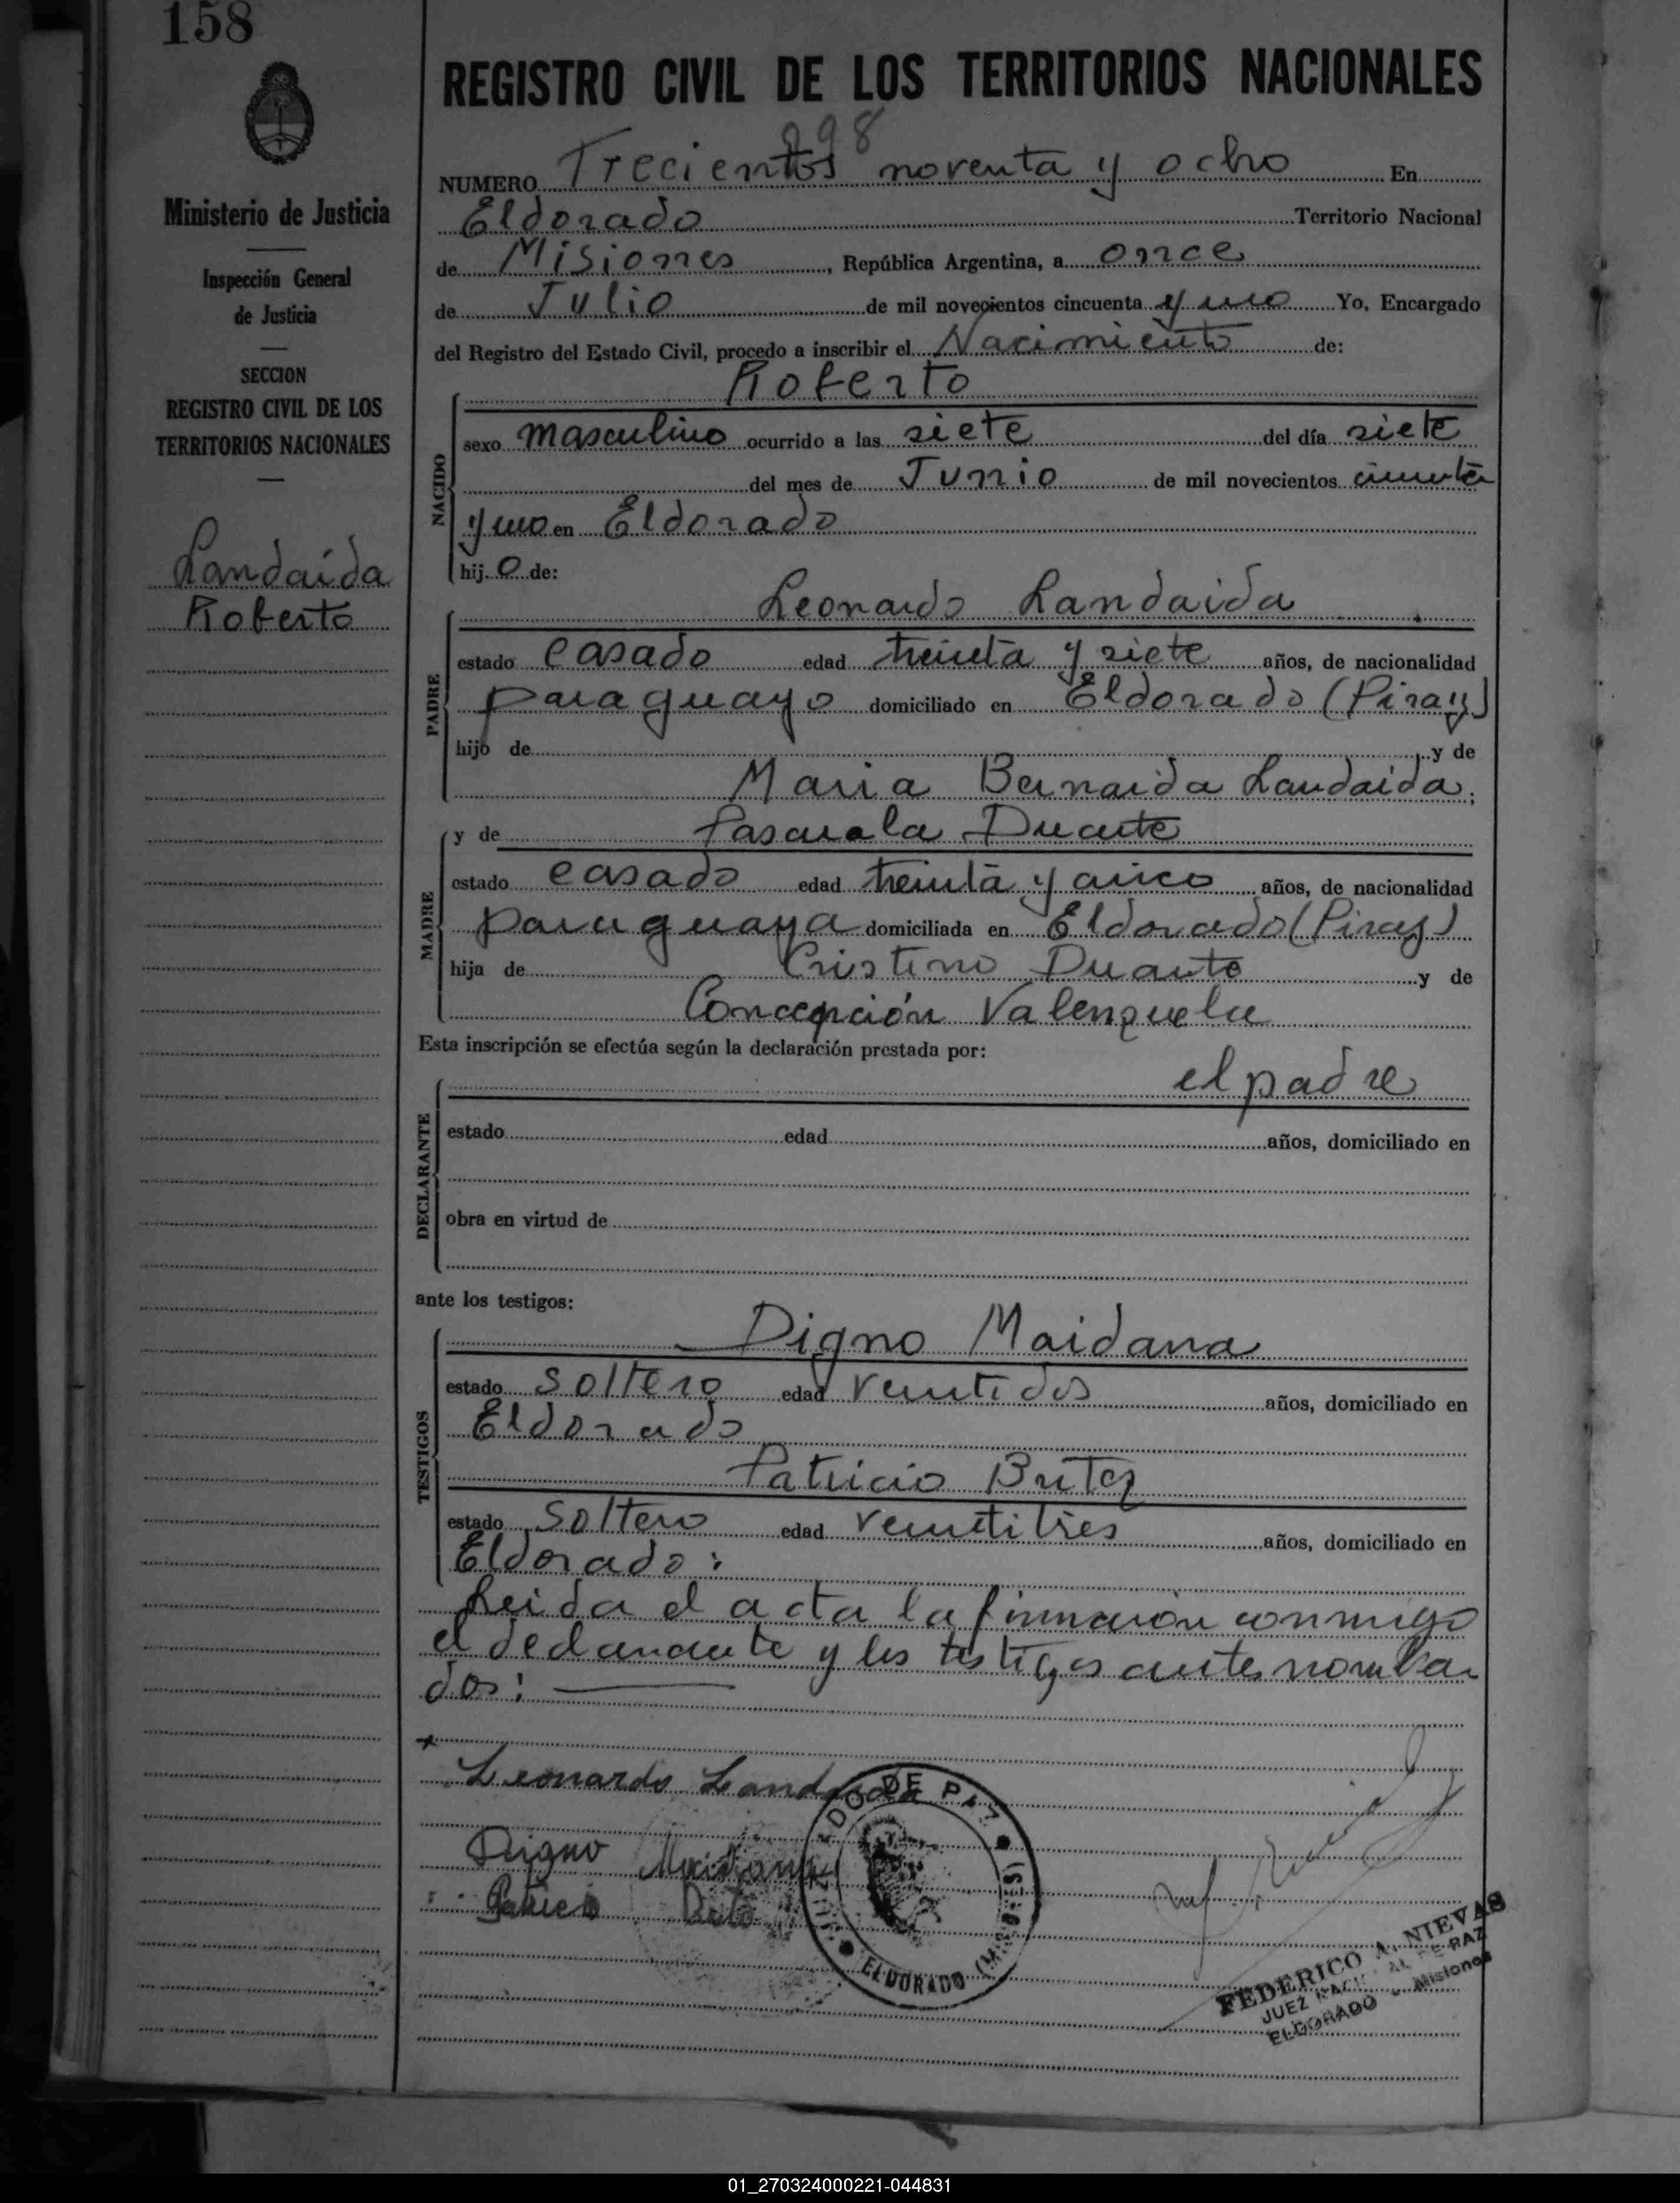 158
REGISTRO CIVIL DE LOS TERRITORIOS NACIONALES
Ministerio de Justicia
Inspección General
de Justicia
SECCION
REGISTRO CIVIL DE LOS
TERRITORIOS NACIONALES
Landaida
Roberto
398
NUMERO Trecientos noventa y ocho En
Eldorado Territorio Nacional
de Misiones, República Argentina, a once
de Julio de mil novecientos cincuenta y uno Yo, Encargado
del Registro del Estado Civil, procedo a inscribir el Nacimiento de:
Roberto
NACIDO
sexo masculino ocurrido a las siete del día siete
del mes de Junio de mil novecientos cincuenta
y uno en Eldorado
hijo de:
Leonardo Landaida
PADRE
estado casado edad treinta y siete años, de nacionalidad
paraguayo domiciliado en Eldorado (Piray)
hijo de y de
Maria Bernarda Landaida;
y de Pascuala Duarte
MADRE
estado casado edad treinta y cinco años, de nacionalidad
paraguaya domiciliada en Eldorado (Piray)
hija de Cristino Duarte y de
Concepción Valenzuela
Esta inscripción se efectúa según la declaración prestada por:
el padre
DECLARANTE
estado edad años, domiciliado en
obra en virtud de
ante los testigos:
Digno Maidana
TESTIGOS
estado soltero edad veintidos años, domiciliado en
Eldorado
Patricio Britez
estado soltero edad veintitres años, domiciliado en
Eldorado:
Leida el acta la firmaron conmigo
el declarante y los testigos antes nombra
dos:
Leonardo Landaida
Digno Maidana
Patricio
DO DE PAZ
ELDORADO (MISIONES)
FEDERICO A. NIEVAS
JUEZ DE PAZ
ELDORADO - Misiones
01_270324000221-044831